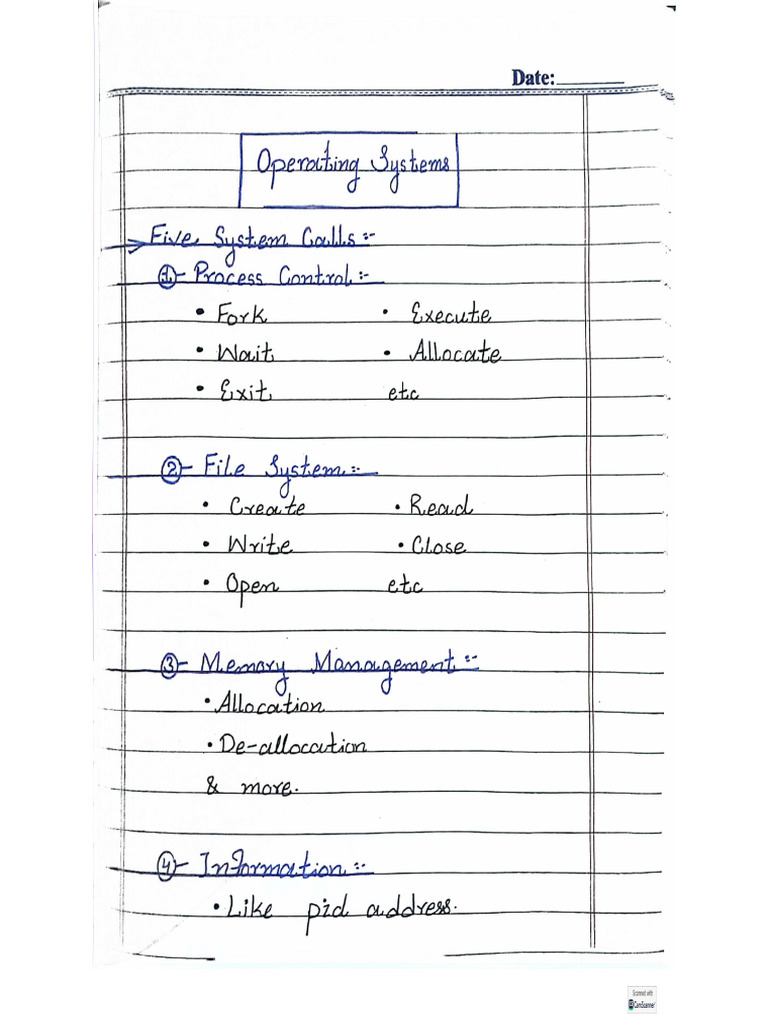 Date:
Operating Systems
Five System Calls:-
①- Process Control:-
• Fork • Execute
• Wait • Allocate
• Exit etc
②- File System:-
• Create • Read
• Write • Close
• Open etc
③- Memory Management:-
• Allocation
• De-allocation
& more.
④- Information:-
• Like pid address.
Scanned with
CamScanner